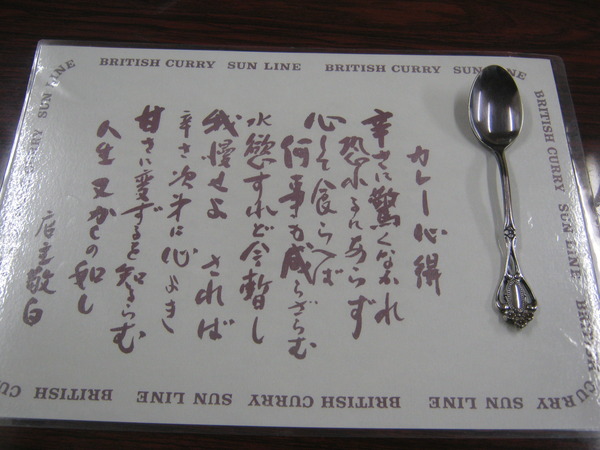 BRITISH CURRY SUN LINE BRITISH CURRY SUN LINE
BRITISH CURRY SUN LINE BRITISH
BRITISH CURRY SUN LINE BRITISH CURRY SUN LINE
SUN LINE
カレー心得
辛さに驚くなかれ
恐れるにあらず
心して食らへば
何事も成らざらむ
水慾すれど今暫し
我慢せよ されば
辛さ次第に心よき
甘さに変ずるを知るらむ
人生又かくの如し
店主敬白